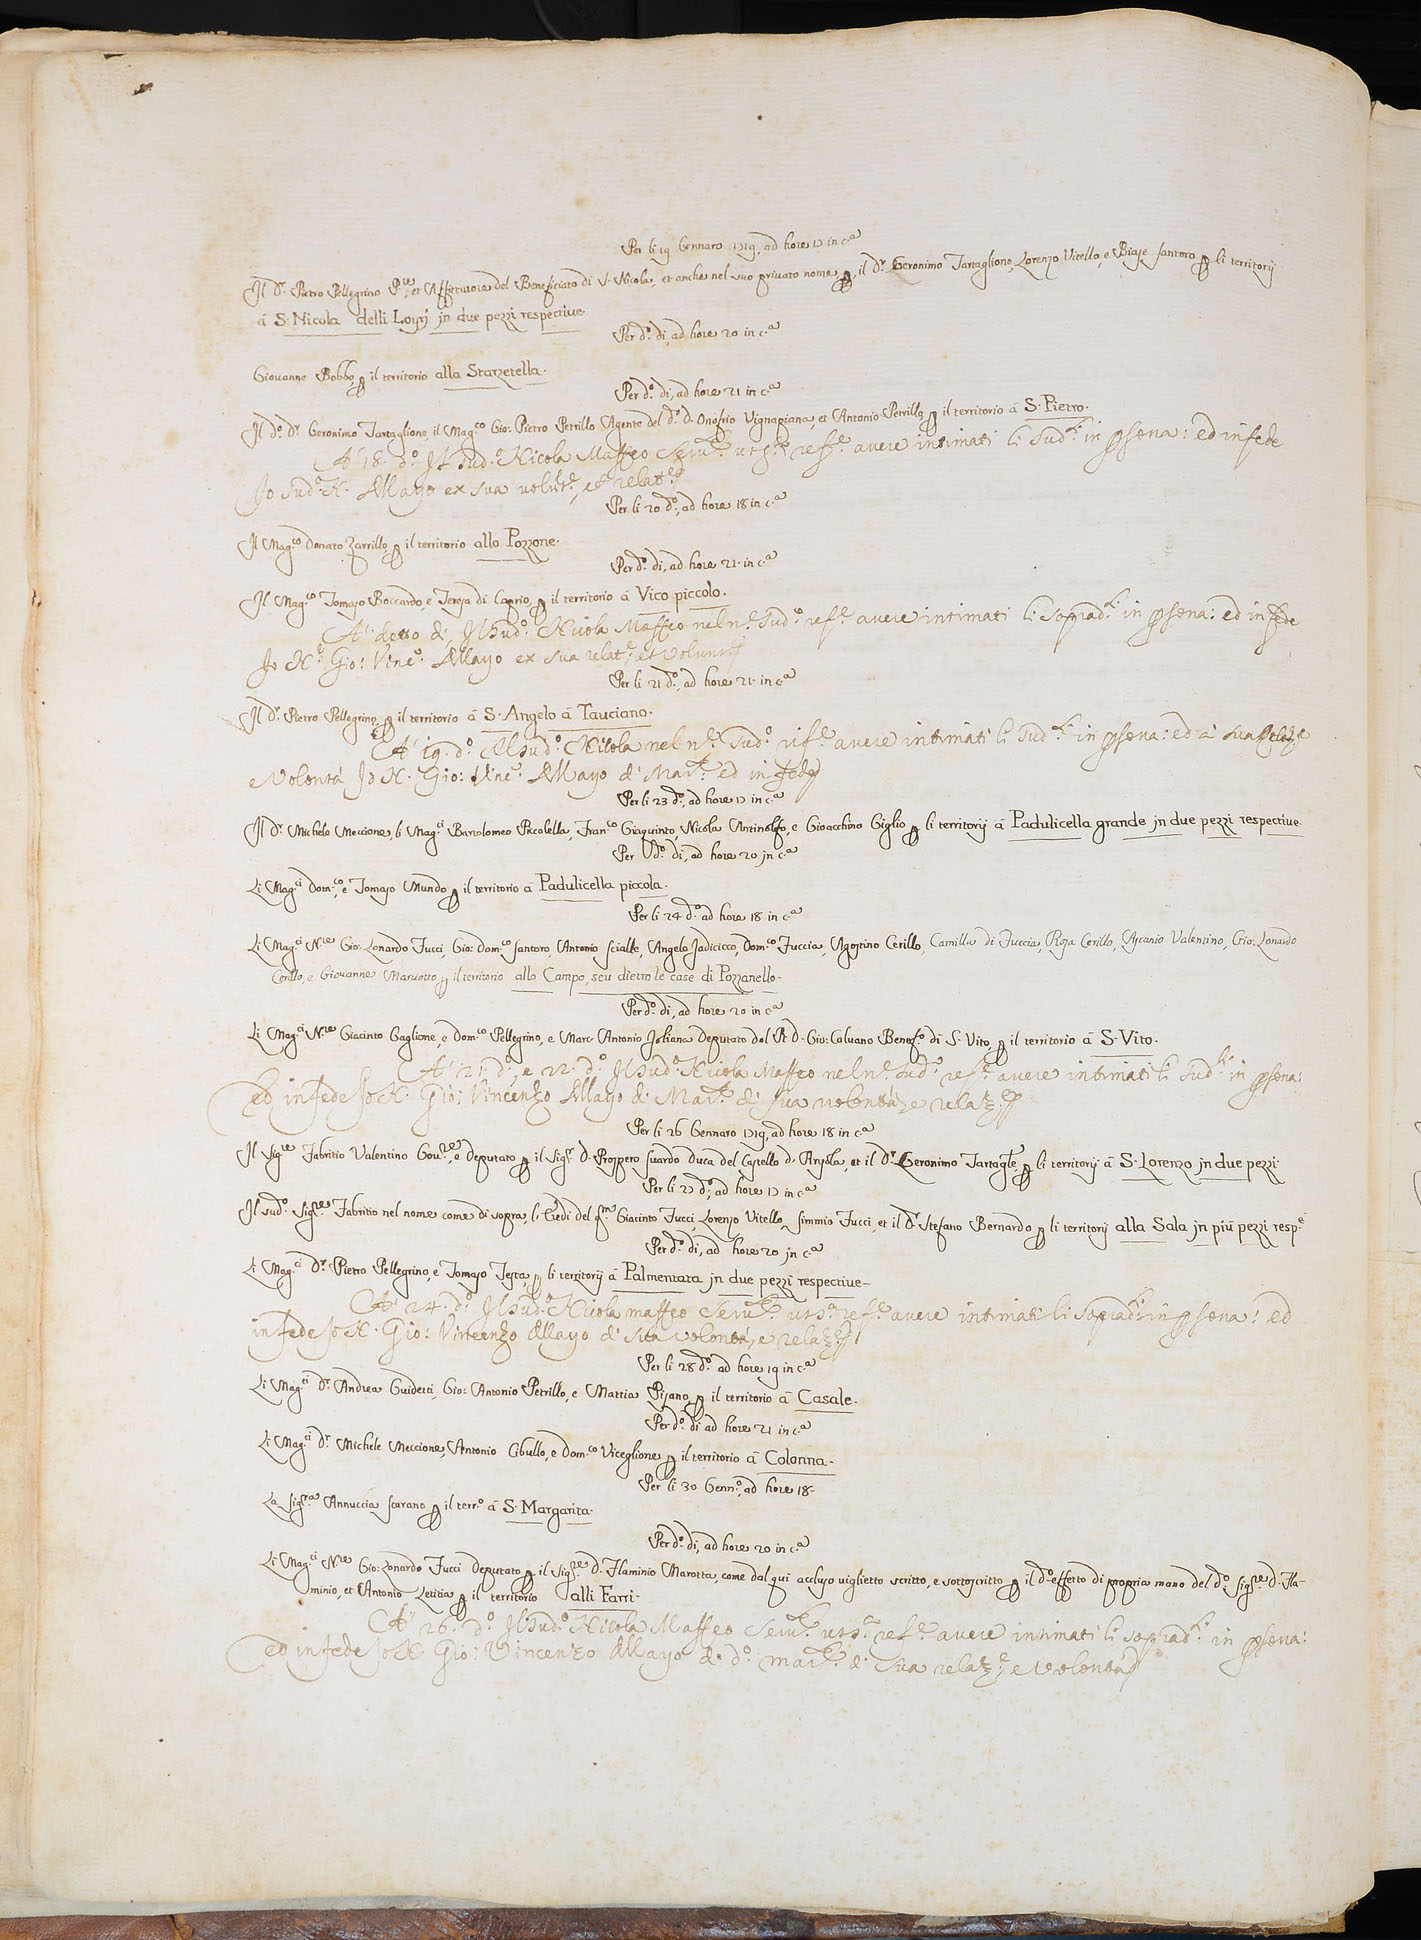 Per li 19 Gennaro 1719, ad hore 17 in c.a
Il D.r Pietro Pellegrino P.re, et Affittatore del Beneficiato di S. Nicola, et anche nel suo privato nome, p il D.r Geronimo Tartaglione, Lorenzo Vitello, e Biase Santoro p li territorij
à S. Nicola delli Loysi jn due pezzi respectiue.
Per d.o di, ad hore 20 in c.a
Giouanne Bobbo, p il territorio alla Starzetella.
Per d.o di, ad hore 21 in c.a
Il d.o D.r Geronimo Tartaglione, il Mag.co Gio: Pietro Petrillo Agente del d.o D. Onofrio Vignapiana, et Antonio Petrillo, p il territorio à S. Pietro.
A' 18. d.o Il sud.o Nicola Maffeo Seru.te ut s.a ref.e auere intimati li sud.i in psona: ed in fede
Io sud.o N. Allayo ex sua volunt.e, et relat.e
Per li 20 d.o, ad hore 18 in c.a
Il Mag.co Donato Zarrillo, p il territorio allo Pozzone.
Per d.o di, ad hore 21. in c.a
Il Mag.co Tomaso Boccardo, e Teresa di Caprio, p il territorio à Vico piccolo.
A' detto dì, Il sud.o Nicola Maffeo nel n.e sud.o ref.e auere intimati li soprad.i in psona: ed in fede
Io N.r Gio: Vinc.o Allayo ex sua relat.e, et volunt.e
Per li 21 d.o, ad hore 21. in c.a
Il D.r Pietro Pellegrino, p il territorio à S. Angelo à Tauciano.
A' 19. d.o Il sud.o Nicola nel n.e sud.o rif.e auere intimati li sud.i in psona: ed a' sua relaz.e
e Volontà Io N. Gio: Vinc.o Allayo di Mar.se ed in fede
Per li 23 d.o, ad hore 17 in c.a
Il D.r Michele Meccione, li Mag.ci Bartolomeo Piccolella, Fran.co Giaquinto, Nicola Antinolfo, e Gioacchino Giglio p li territorij à Padulicella grande jn due pezzi respectiue.
Per d.o di, ad hore 20 jn c.a
Li Mag.ci Dom.co, e Tomaso Mundo p il territorio à Padulicella piccola.
Per li 24 d.o ad hore 18 in c.a
Li Mag.ci N.re Gio: Lonardo Fucci, Gio: Dom.co Santoro, Antonio Scialle, Angelo Jadicicco, Dom.co Fuccia, Agostino Cerillo, Camilla di Fuccia, Rosa Cerillo, Ascanio Valentino, Gio: Lonardo
Cerillo, e Giouanne Maruotto p il territorio allo Campo, seu dietro le case di Pozzanello.
Per d.o di, ad hore 20 in c.a
Li Mag.ci N.re Giacinto Gaglione, e Dom.co Pellegrino, e Marc Antonio Joliana Deputato dal R.D. Gio: Caluano Benef.o di S. Vito, p il territorio à S. Vito.
A' 21. d.o, e 22. d.o Il sud.o Nicola Maffeo nel n.e sud.o ref.e auere intimati li sud.i in psona:
Ed in fede Io N. Gio: Vincenzo Allayo di Mar.se di sua volontà, e relaz.e
Per li 26 Gennaro 1719, ad hore 18 in c.a
Il Sig.re Fabritio Valentino Gou.re, e Deputato p il Sig.r D. Prospero Suardo Duca del Castello d'Ayrola, et il D.r Geronimo Tartagl.e, p li territorij à S. Lorenzo jn due pezzi
Per li 27 d.o, ad hore 17 in c.a
Il sud.o Sig.re Fabritio nel nome come di sopra, li Eredi del q.m Giacinto Fucci, Lorenzo Vitello, Simmio Fucci, et il D.r Stefano Bernardo p li territorij alla Sala jn più pezzi resp.e
Per d.o di, ad hore 20 jn c.a
Li Mag.ci D.r Pietro Pellegrino, e Tomaso Testa, p li territorij à Palmentata jn due pezzi respectiue-
A' 24. d.o Il sud.o Nicola maffeo Seru.te ut s.a ref.e auere intimati li soprad.i in psona: ed
in fede Io N. Gio: Vincenzo Allayo di sua volontà, e relaz.e
Per li 28 d.o ad hore 19 in c.a
Li Mag.ci D.r Andrea Guidetti, Gio: Antonio Petrillo, e Mattia Pisano, p il territorio à Casale.
Per d.o di ad hore 21 in c.a
Li Mag.ci D.r Michele Meccione, Antonio Cibullo, e Dom.co Viceglione p il territorio à Colonna.
Per li 30 Genn.o, ad hore 18.
La Sig.ra Annuccia Scarano p il terr.o à S. Margarita.
Per d.o di, ad hore 20 in c.a
Li Mag.ci N.re Gio: Lonardo Fucci Deputato p il Sig.re D. Flaminio Marotta, come dal qui accluso viglietto scritto, e sottoscritto p il d.o effetto di propria mano del d.o Sig.re D. Fla-
minio, et Antonio Letitia p il territorio alli Farri.
A' 26. d.o Il sud.o Nicola Maffeo Seru.te ut s.a ref.e auere intimati li soprad.i in psona:
ed in fede Io N. Gio: Vincenzo Allayo di d.o mar.se di sua relaz.e, e Volontà